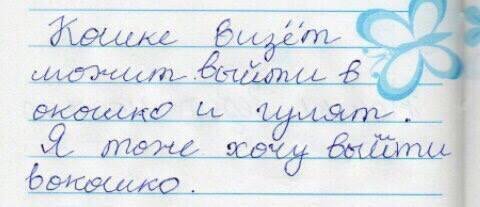 Кошке визёт
можит выйти в
окошко и гулят.
Я тоже хочу выйти
вокошко.